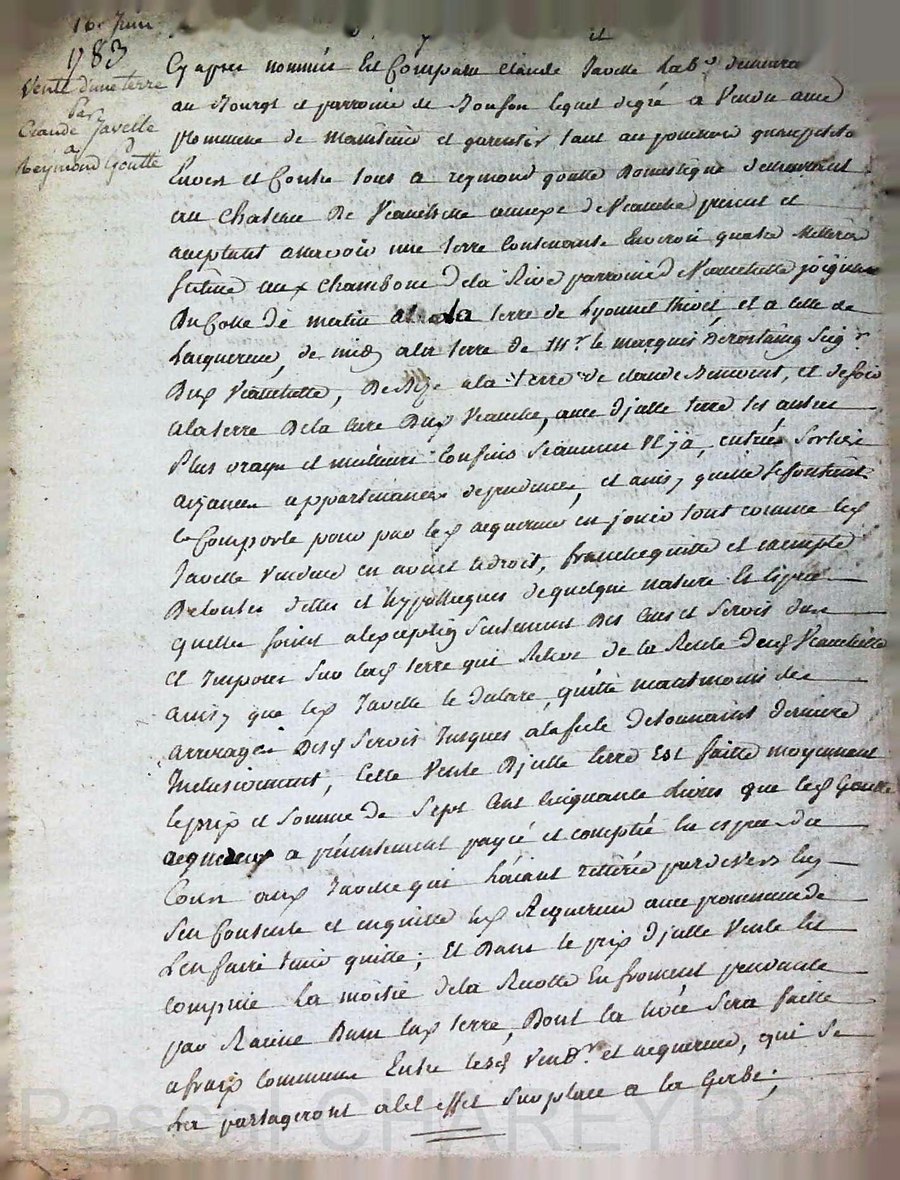 16e Juin
1783
Vente d'une terre
Par
Claude Javelle
a
Reymond Goutte
Cy apres nommés Est Comparu Claude Javelle Lab.r demeurant
au Bourgt et parroisse de lequel degré a Vendu avec
promesse de maintenir et garentir tant au que
Envers et Contre tous a reymond goutte Domestique demeurant
au chateau De Veauchette annexe de Veauche present et
acceptant assavoir une terre Contenante Environ quatre
située aux chambons de la Rive parroisse de Veauchette
Du Cotté de matin a la terre de Lyonnet Thivet, et a celle de
Lacquereur, de midy a la terre de M.r le marquis Seig.r
Dud Veauchette, De Bize a la terre de claude , et de soir
a la terre De la Cure Dud Veauche, avec d'jcelle terre ses autres
Plus vrays et meilleurs Confins Sy aucuns Il y a, entrées Sorties
aizances appartenances dependances, et ainsy quelle
Se Comporte pour par led acquereur en jouir tout comme led
Javelle Vendeur en avoit le droit, franche quitte et exempte
De toutes dettes et hypotheques de quelque nature Et Espece
quelles soient a lexception Seulement Des Cens et Servis dus
et Imposés Sur lad terre qui Releve de la Rente dud Veauchette
ainsy que led Javelle le declare, quitte neantmoins des
arrerages Desd Servis Jusques a la fete de toussaint derniere
Inclusivement, Cette Vente D'jcelle terre Est faitte moyennant
le prix et Somme de Sept Cent Cinquante Livres que led Goutte
acquereur a presentement payée et comptée En especes du
Cours aud Javelle qui Lâiant retirée pardevers luy
Sen Contente et en quitte led Acquereur avec promesse de
Len faire tenir quitte; Et Dans le prix D'jcelle Vente Est
comprise La moitié de la Recolte En froment pendante
par Racine Dans lad terre, Dont la levée Sera faitte
a frais communs Entre lesd Vend.r et acquereur, qui Se
Les partageront a cet effet Sur place a la Gerbe;
Pascal CHAREYRON